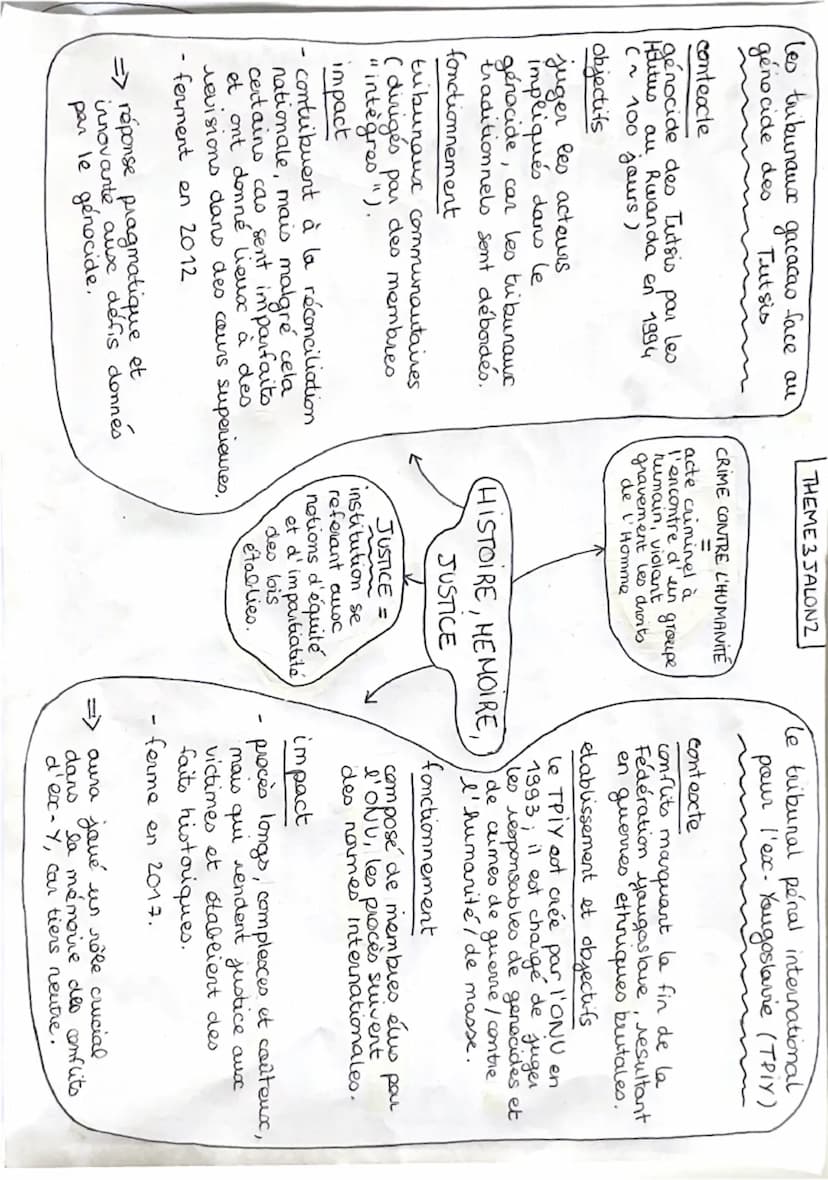 THEME 3 JALON 2
les tribunaux gacacas face au
génocide des Tutsis
contexte
génocide des Tutsis par les
Hutus au Rwanda en 1994
(~ 100 jours)
objectifs
juger les acteurs
impliqués dans le
génocide, car les tribunaux
traditionnels sont débordés.
fonctionnement
tribunaux communautaires
(dirigés par des membres
"intègres").
impact
- contribuent à la réconciliation
nationale, mais malgré cela
certains cas sont imparfaits
et ont donné lieux à des
revisions dans des cours superieures.
- ferment en 2012
=> réponse pragmatique et
innovante aux défis donnés
par le génocide.
CRIME CONTRE L'HUMANITÉ
=
acte criminel à
l'encontre d'un groupe
humain, violant
gravement les droits
de l'Homme
HISTOIRE, MEMOIRE,
JUSTICE
JUSTICE =
institution se
referant aux
notions d'équité
et d'impartialité
des lois
établies.
le tribunal pénal international
pour l'ex-Yougoslavie (TPIY)
contexte
conflits marquant la fin de la
Fédération yougoslave, resultant
en guerres ethniques brutales.
etablissement et objectifs
le TPIY est crée par l'ONU en
1993; il est chargé de juger
les responsables de genocides et
de crimes de guerre/contre
l'humanité/de masse.
fonctionnement
composé de membres élus par
l'ONU, les procès suivent
des normes internationales.
impact
- procès longs, complexes et coûteux,
mais qui rendent justice aux
victimes et établient des
faits historiques.
- ferme en 2017.
=> aura joué un rôle crucial
dans la mémoire des conflits
d'ex-Y, car tiers neutre.